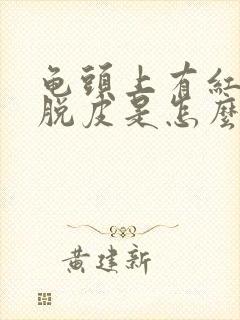 龟頭上有紅
脱皮是怎麼
黄建新